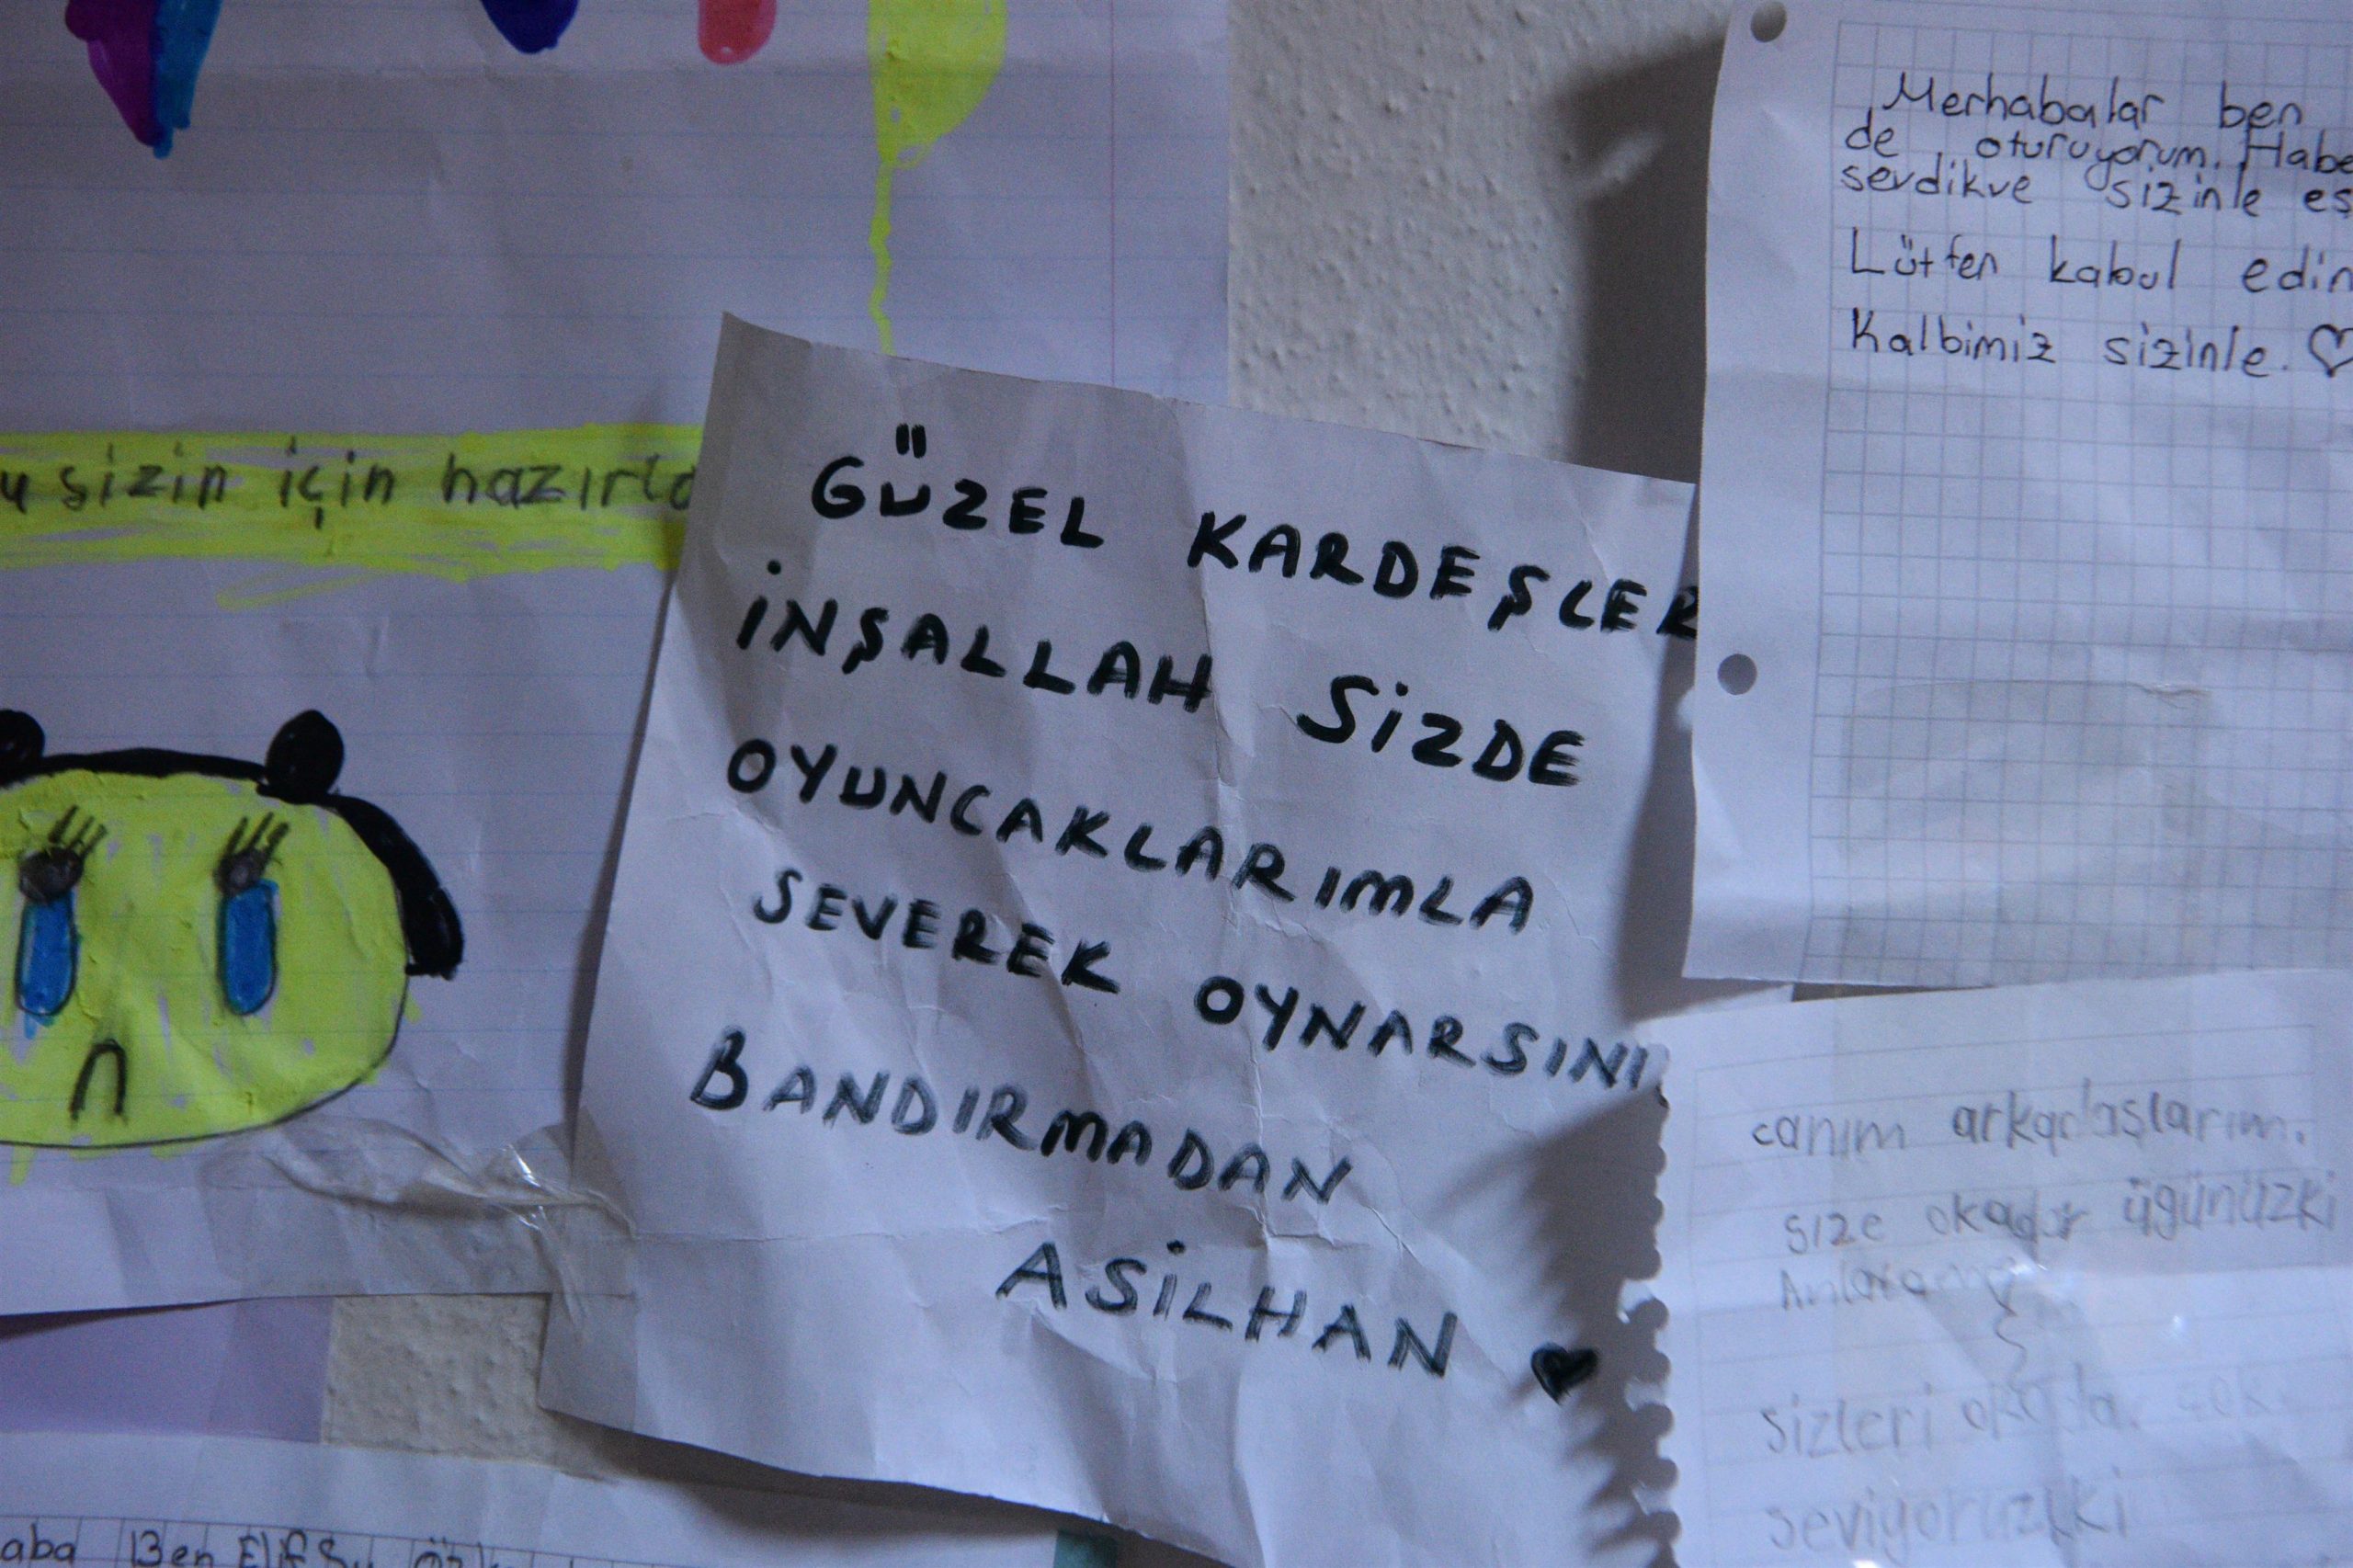 sizin için
GÜZEL KARDEŞLER
İNŞALLAH SİZDE
OYUNCAKLARIMLA
SEVEREK OYNARSINI
BANDIRMADAN
ASİLHAN ♥
Merhabalar ben
de oturuyorum. Habe
sevdikve sizinle eş
Lütfen kabul edin
Kalbimiz sizinle. ♡
canım arkadaşlarım.
size okadar üğünüzki
sizleri
seviyoruzki
aba Ben Elif Su